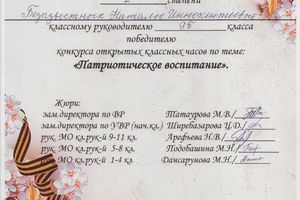 степени
Безизвестных Наталье Иннокентьевне
классному руководителю 9б класса
победителю
конкурса открытых классных часов по теме:
«Патриотическое воспитание».
Жюри:
зам.директора по ВР Татаурова М.В./
зам.директора по УВР (нач.кл.) Ширебазарова Ц.Д./
рук. МО кл.рук-й 9-11 кл. Арефьева Н.В./
рук. МО кл.рук-й 5-8 кл. Подобашина М.Н./
рук. МО кл.рук-й 1-4 кл. Дансарунова М.Н./